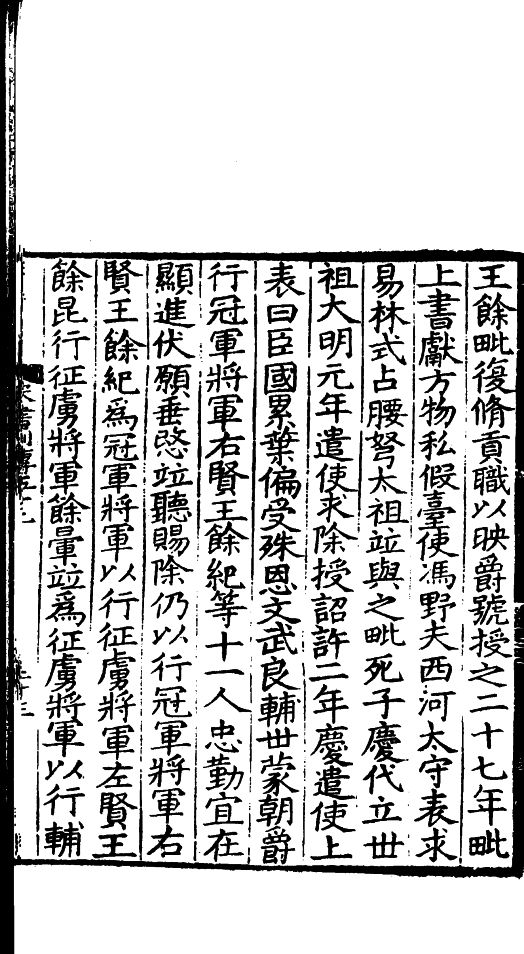 王餘毗復脩貢職以映爵號授之二十七年毗
上書獻方物私假臺使馮野夫西河太守表求
易林式占腰弩太祖竝與之毗死子慶代立世
祖大明元年遣使求除授詔許二年慶遣使上
表曰臣國累葉偏受殊恩文武良輔世蒙朝爵
行冠軍將軍右賢王餘紀等十一人忠勤宜在
顯進伏願垂愍竝聽賜除仍以行冠軍將軍右
賢王餘紀爲冠軍將軍以行征虜將軍左賢王
餘昆行征虜將軍餘暈竝爲征虜將軍以行輔